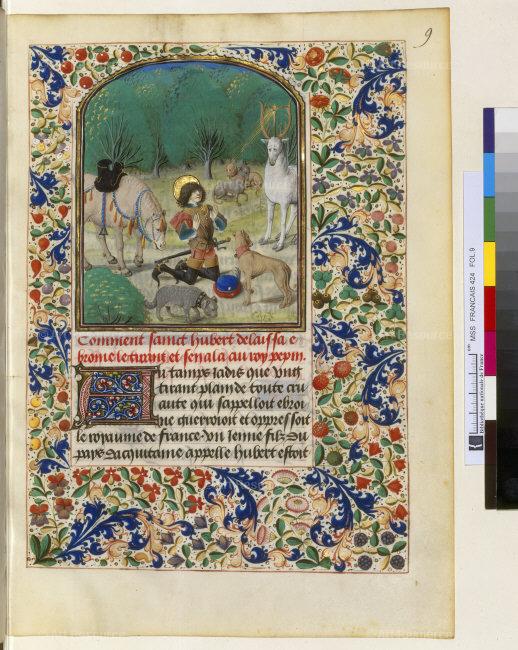 9
Comment sainct hubert delaissa e
broine le tirant et sen ala au roy pepin.
Au tamps iadis que vng
tirant plain de toute cru
aute qui sappelloit ebroi
ne guerroioit et oppressoit
le royaume de france vn ienne filz du
pays dacquitaine appelle hubert estoit
MSS FRANCAIS 424 FOL.9
Bibliothèque nationale de France